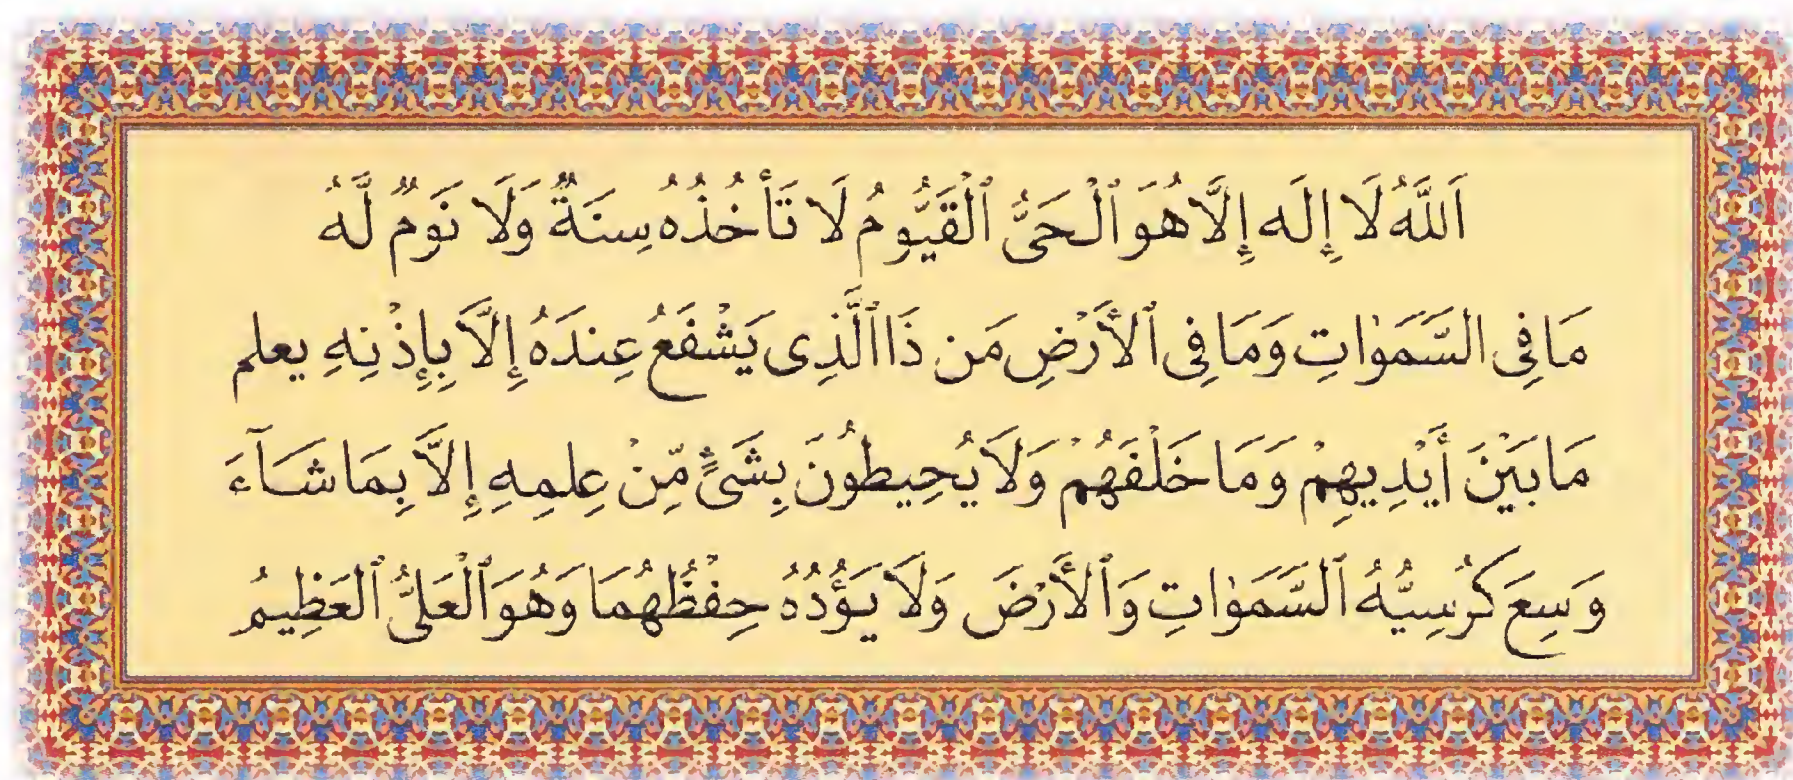 اَللَّهُ لَا إِلَه إِلَّا هُوَ ٱلْحَىُّ ٱلْقَيُّومُ لَا تَأخُذُهُ سِنَةٌ وَلَا نَومٌ لَّهُ
مَا فِى السَّمَوٰاتِ وَمَا فِى ٱلأَرْضِ مَن ذَا ٱلَّذِى يَشْفَعُ عِندَهُ إِلاَّ بِإِذْنِهِ يعلم
مَا بَيْنَ أَيْدِيهِمْ وَمَا خَلْفَهُمْ وَلاَ يُحِيطُونَ بِشَىْءٍ مِّنْ عِلمِهِ إِلاَّ بِمَا شَآءَ
وَسِعَ كُرْسِيُّهُ ٱلسَّمَوٰاتِ وَٱلأَرْضَ وَلاَ يَؤُدُهُ حِفْظُهُمَا وَهُوَ ٱلْعَلىُّ ٱلعَظِيمُ